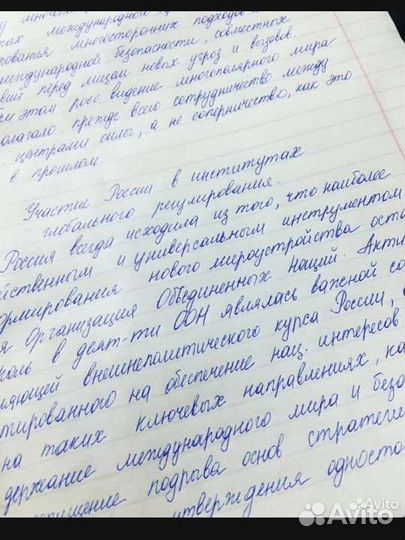 у много
тах международного
рования многосторонних подходов
международной безопасности, совместных
вий перед лицом новых угроз и вызовов.
ри этом рос. видение многополярного мира
олагало прежде всего сотрудничество между
центрами силы, а не соперничество, как это
в прошлом.
Участие России в институтах
глобального регулирования.
Россия всегда исходила из того, что наиболее
йственным и универсальным инструментом
ормирования нового мироустройства оста
я Организация Объединенных Наций. Акти
роль в деят-ти ООН являлась важной со
вляющей внешнеполитического курса России,
тированного на обеспечение нац. интересов
на таких ключевых направлениях, ка
держание международного мира и безо
ощение подрыва основ стратеги
тверждения односто
Avito
Avito